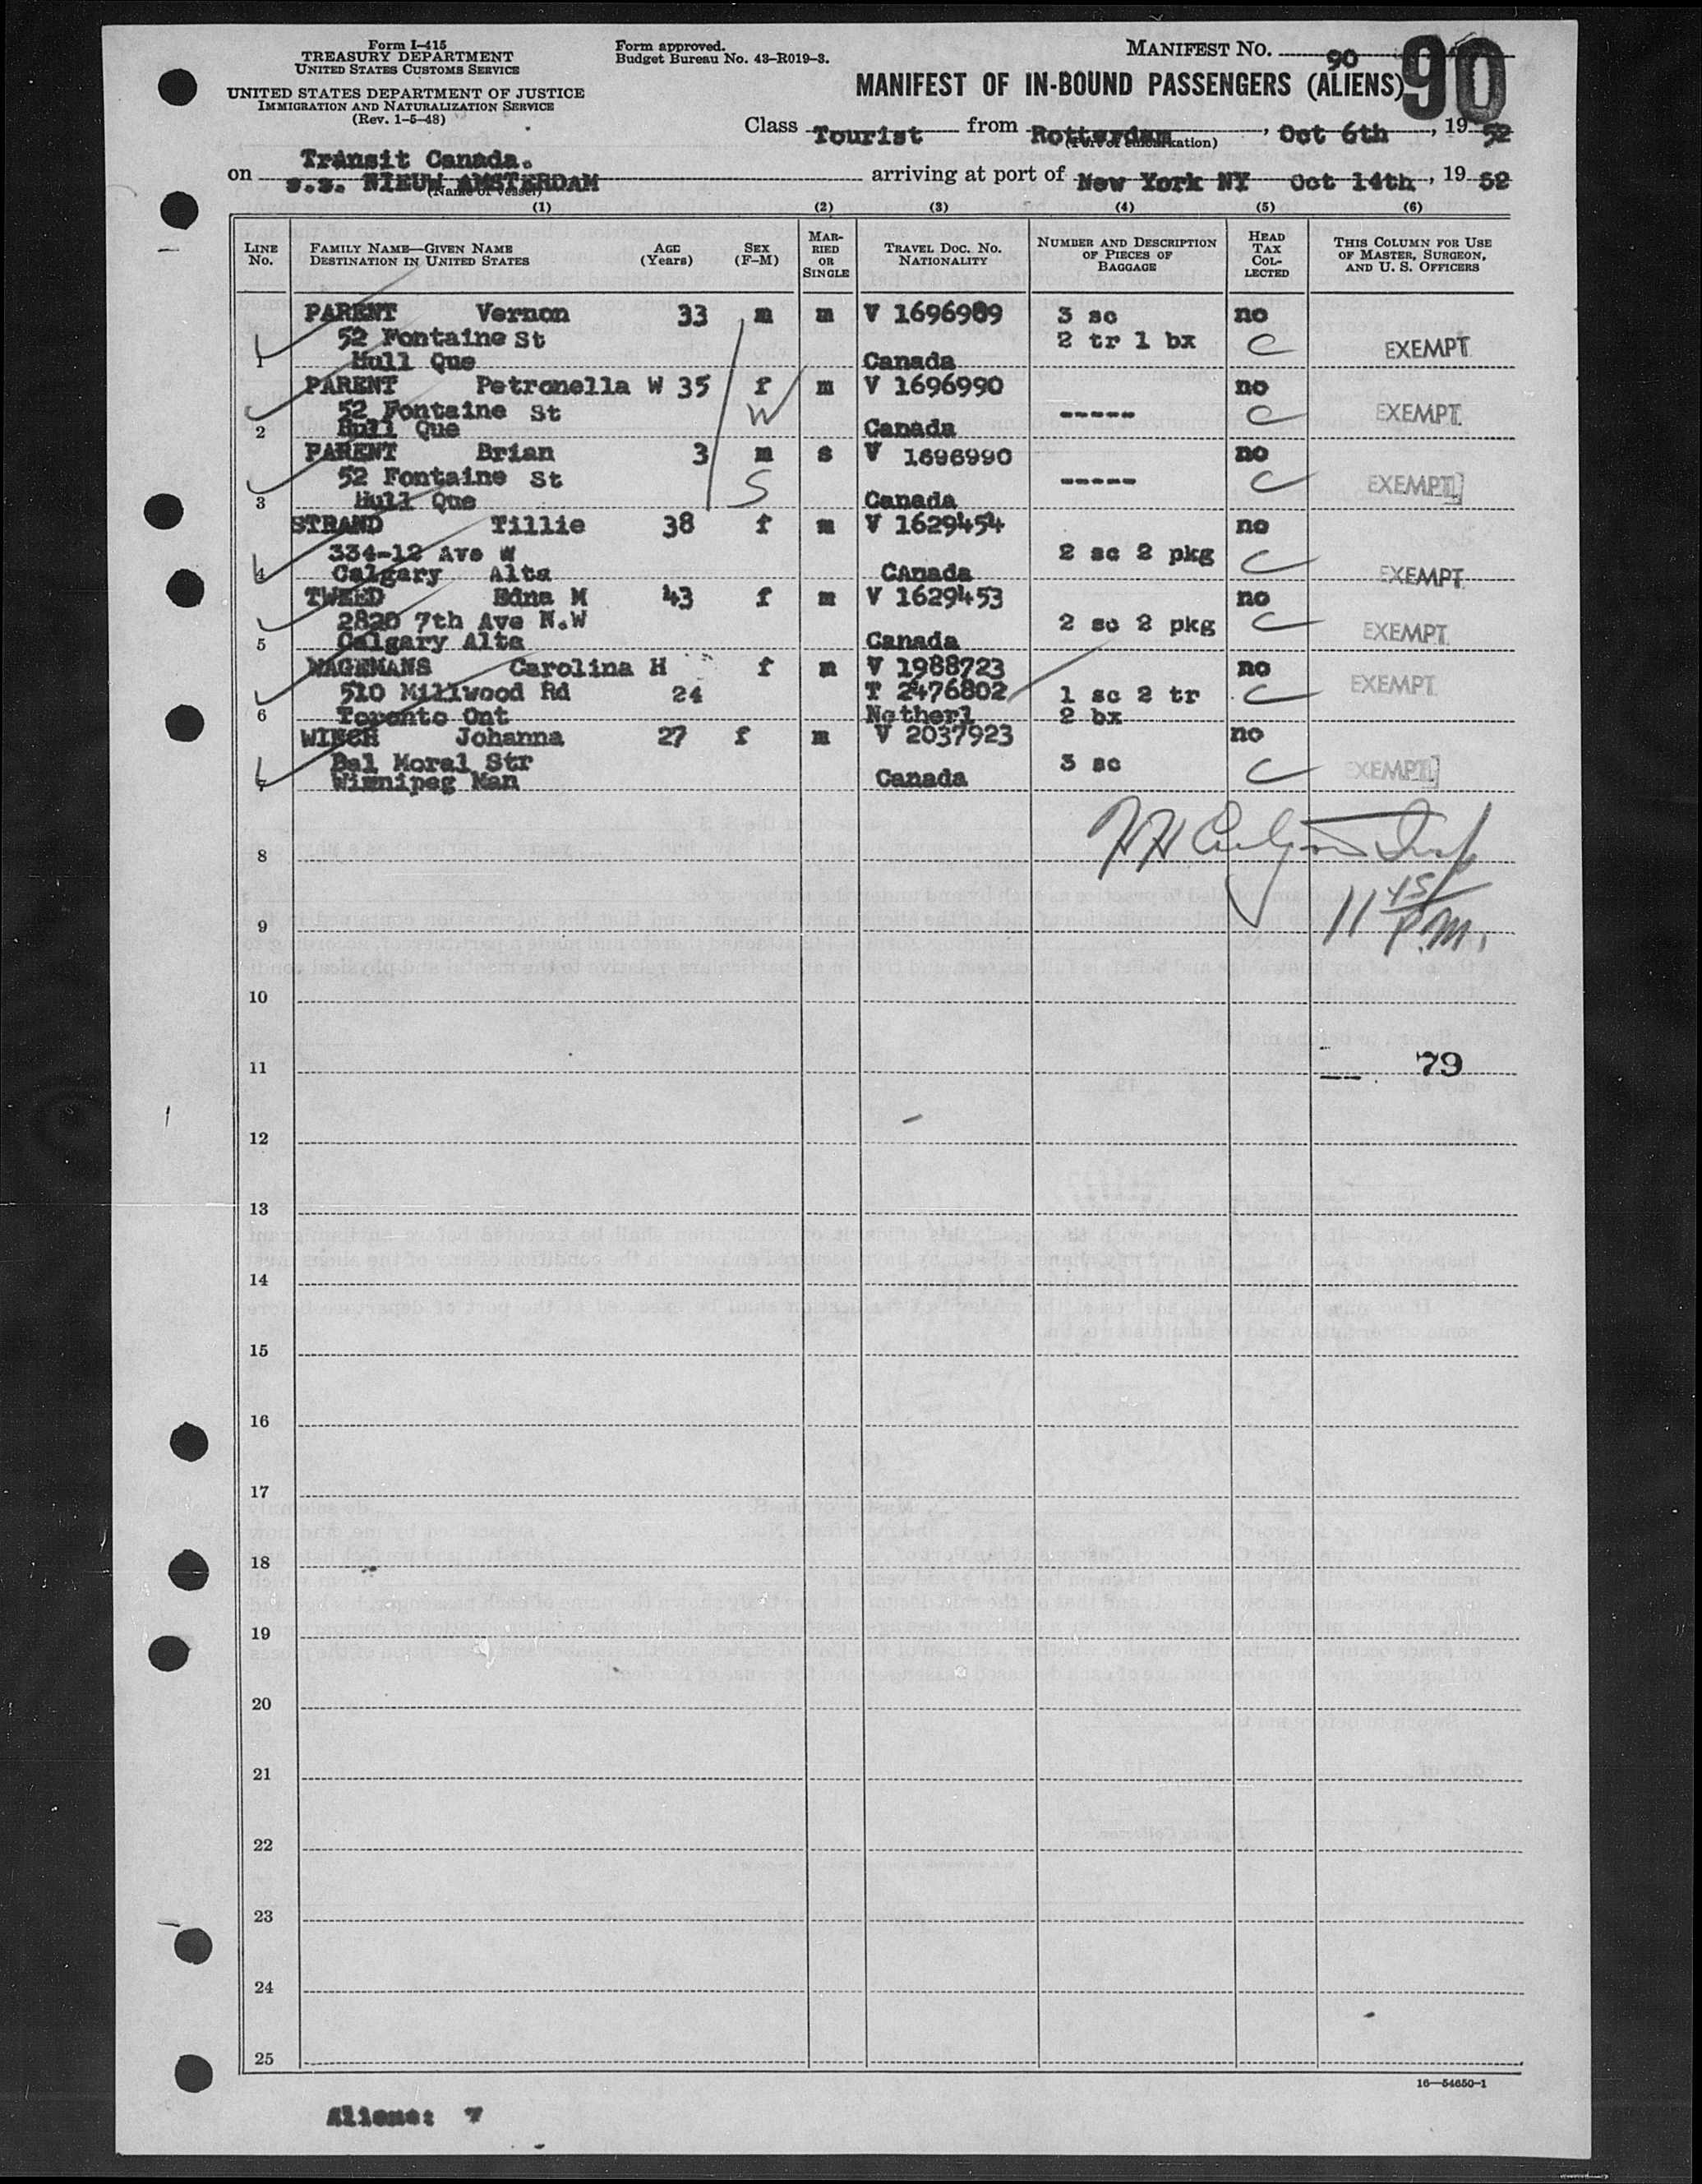 Form I-415
TREASURY DEPARTMENT
UNITED STATES CUSTOMS SERVICE
UNITED STATES DEPARTMENT OF JUSTICE
IMMIGRATION AND NATURALIZATION SERVICE
(Rev. 1-5-48)
Form approved.
Budget Bureau No. 43-R019-3.
MANIFEST NO. 90
90
MANIFEST OF IN-BOUND PASSENGERS (ALIENS)
Class Tourist from Rotterdam, Oct 6th, 19 52
(Port of embarkation)
Transit Canada.
on s.s. NIEUW AMSTERDAM arriving at port of New York NY Oct 14th, 19 52
(Name of vessel)
(1) (2) (3) (4) (5) (6)
LINE No. FAMILY NAME—GIVEN NAME DESTINATION IN UNITED STATES AGE (Years) SEX (F-M) MARRIED OR SINGLE TRAVEL DOC. NO. NATIONALITY NUMBER AND DESCRIPTION OF PIECES OF BAGGAGE HEAD TAX COLLECTED THIS COLUMN FOR USE OF MASTER, SURGEON, AND U. S. OFFICERS
PARENT Vernon 33 m m V 1696989 3 sc no
52 Fontaine St 2 tr 1 bx C EXEMPT
1 Hull Que Canada
PARENT Petronella W 35 f m V 1696990 no
52 Fontaine St W ----- C EXEMPT
2 Hull Que Canada
PARENT Brian 3 m s V 1696990 no
52 Fontaine St S ----- C EXEMPT
3 Hull Que Canada
STRAND Tillie 38 f m V 1629454 no
334-12 Ave W 2 sc 2 pkg C
4 Calgary Alta CAnada EXEMPT
TWEED Edna M 43 f m V 1629453 no
2820 7th Ave N.W 2 sc 2 pkg C EXEMPT
5 Calgary Alta Canada
WAGEMANS Carolina H f m V 1988723 no
510 Millwood Rd 24 T 2476802 1 sc 2 tr C EXEMPT
6 Toronto Ont Netherl 2 bx
Johanna 27 f m V 2037923 no
Bal Moral Str 3 sc C EXEMPT
7 Winnipeg Man Canada
8
11 45/P.M.
9
10
11 79
12
13
14
15
16
17
18
19
20
21
22
23
24
25
16—54650-1
Aliens: 7